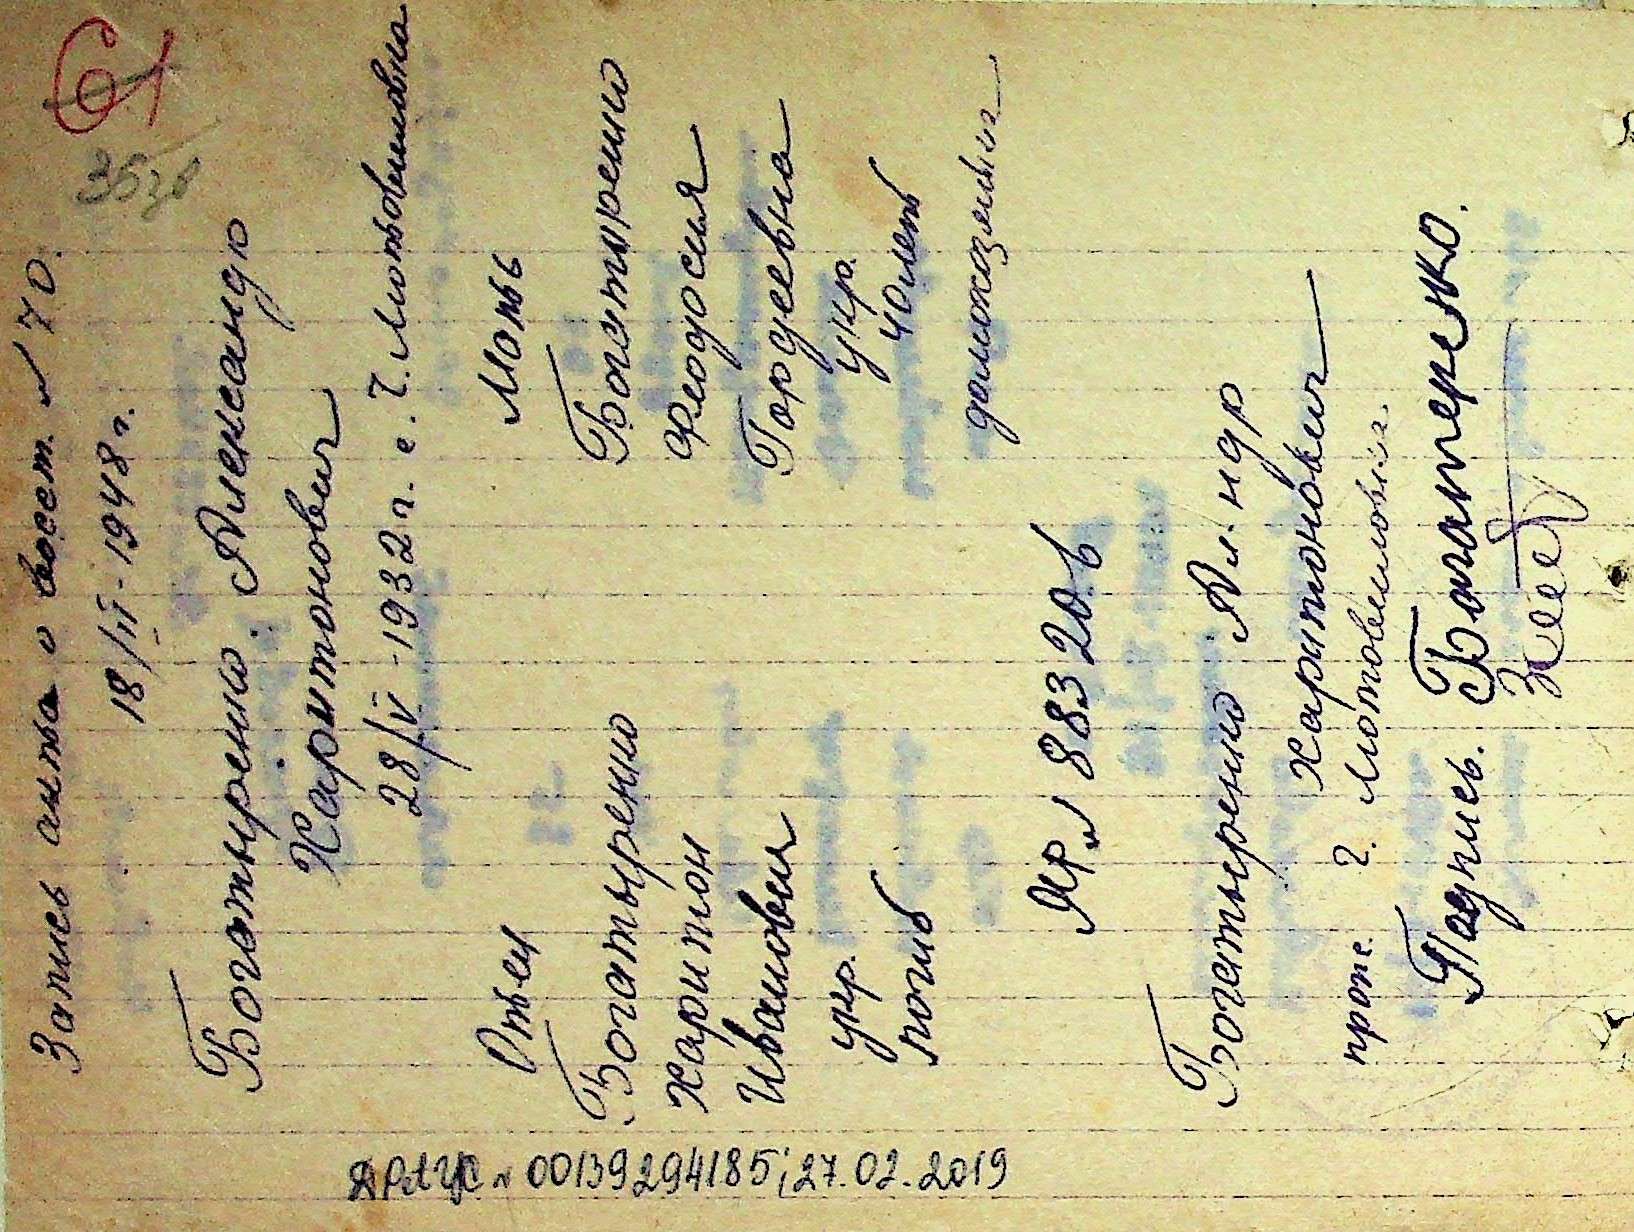 61
35зв
Запись акта о восст. № 70.
18/II-1948 г.
Богатыренко Александр
Харитонович
28/V-1932 г. с. Г. Мотовиловка
Отец
Мать
Богатыренко
Харитон
Иванович
укр.
погиб
Богатыренко
Феодосия
Гордеевна
укр.
40 лет
домохозяйка
ЯР № 883206
Богатыренко Ал-ндр
Харитонович
прож. Г. Мотовиловка
Подпись. Богатеренко.
ДРАЦС № 00139294185; 27.02.2019